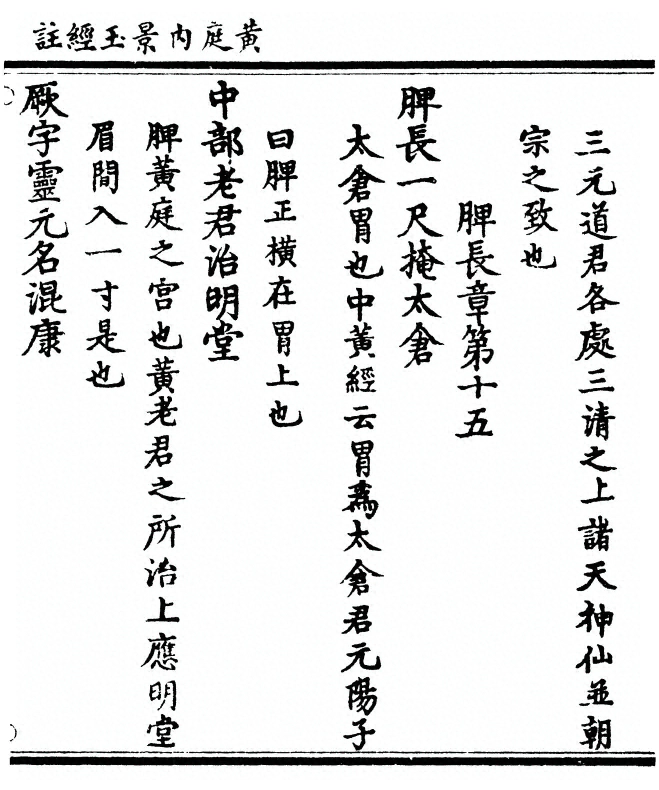 黃庭內景玉經註
三元道君各處三清之上諸天神仙並朝
宗之致也
脾長章第十五
脾長一尺掩太倉
太倉胃也中黃經云胃爲太倉君元陽子
曰脾正橫在胃上也
中部老君治明堂
脾黃庭之宮也黃老君之所治上應明堂
眉間入一寸是也
厥字靈元名混康